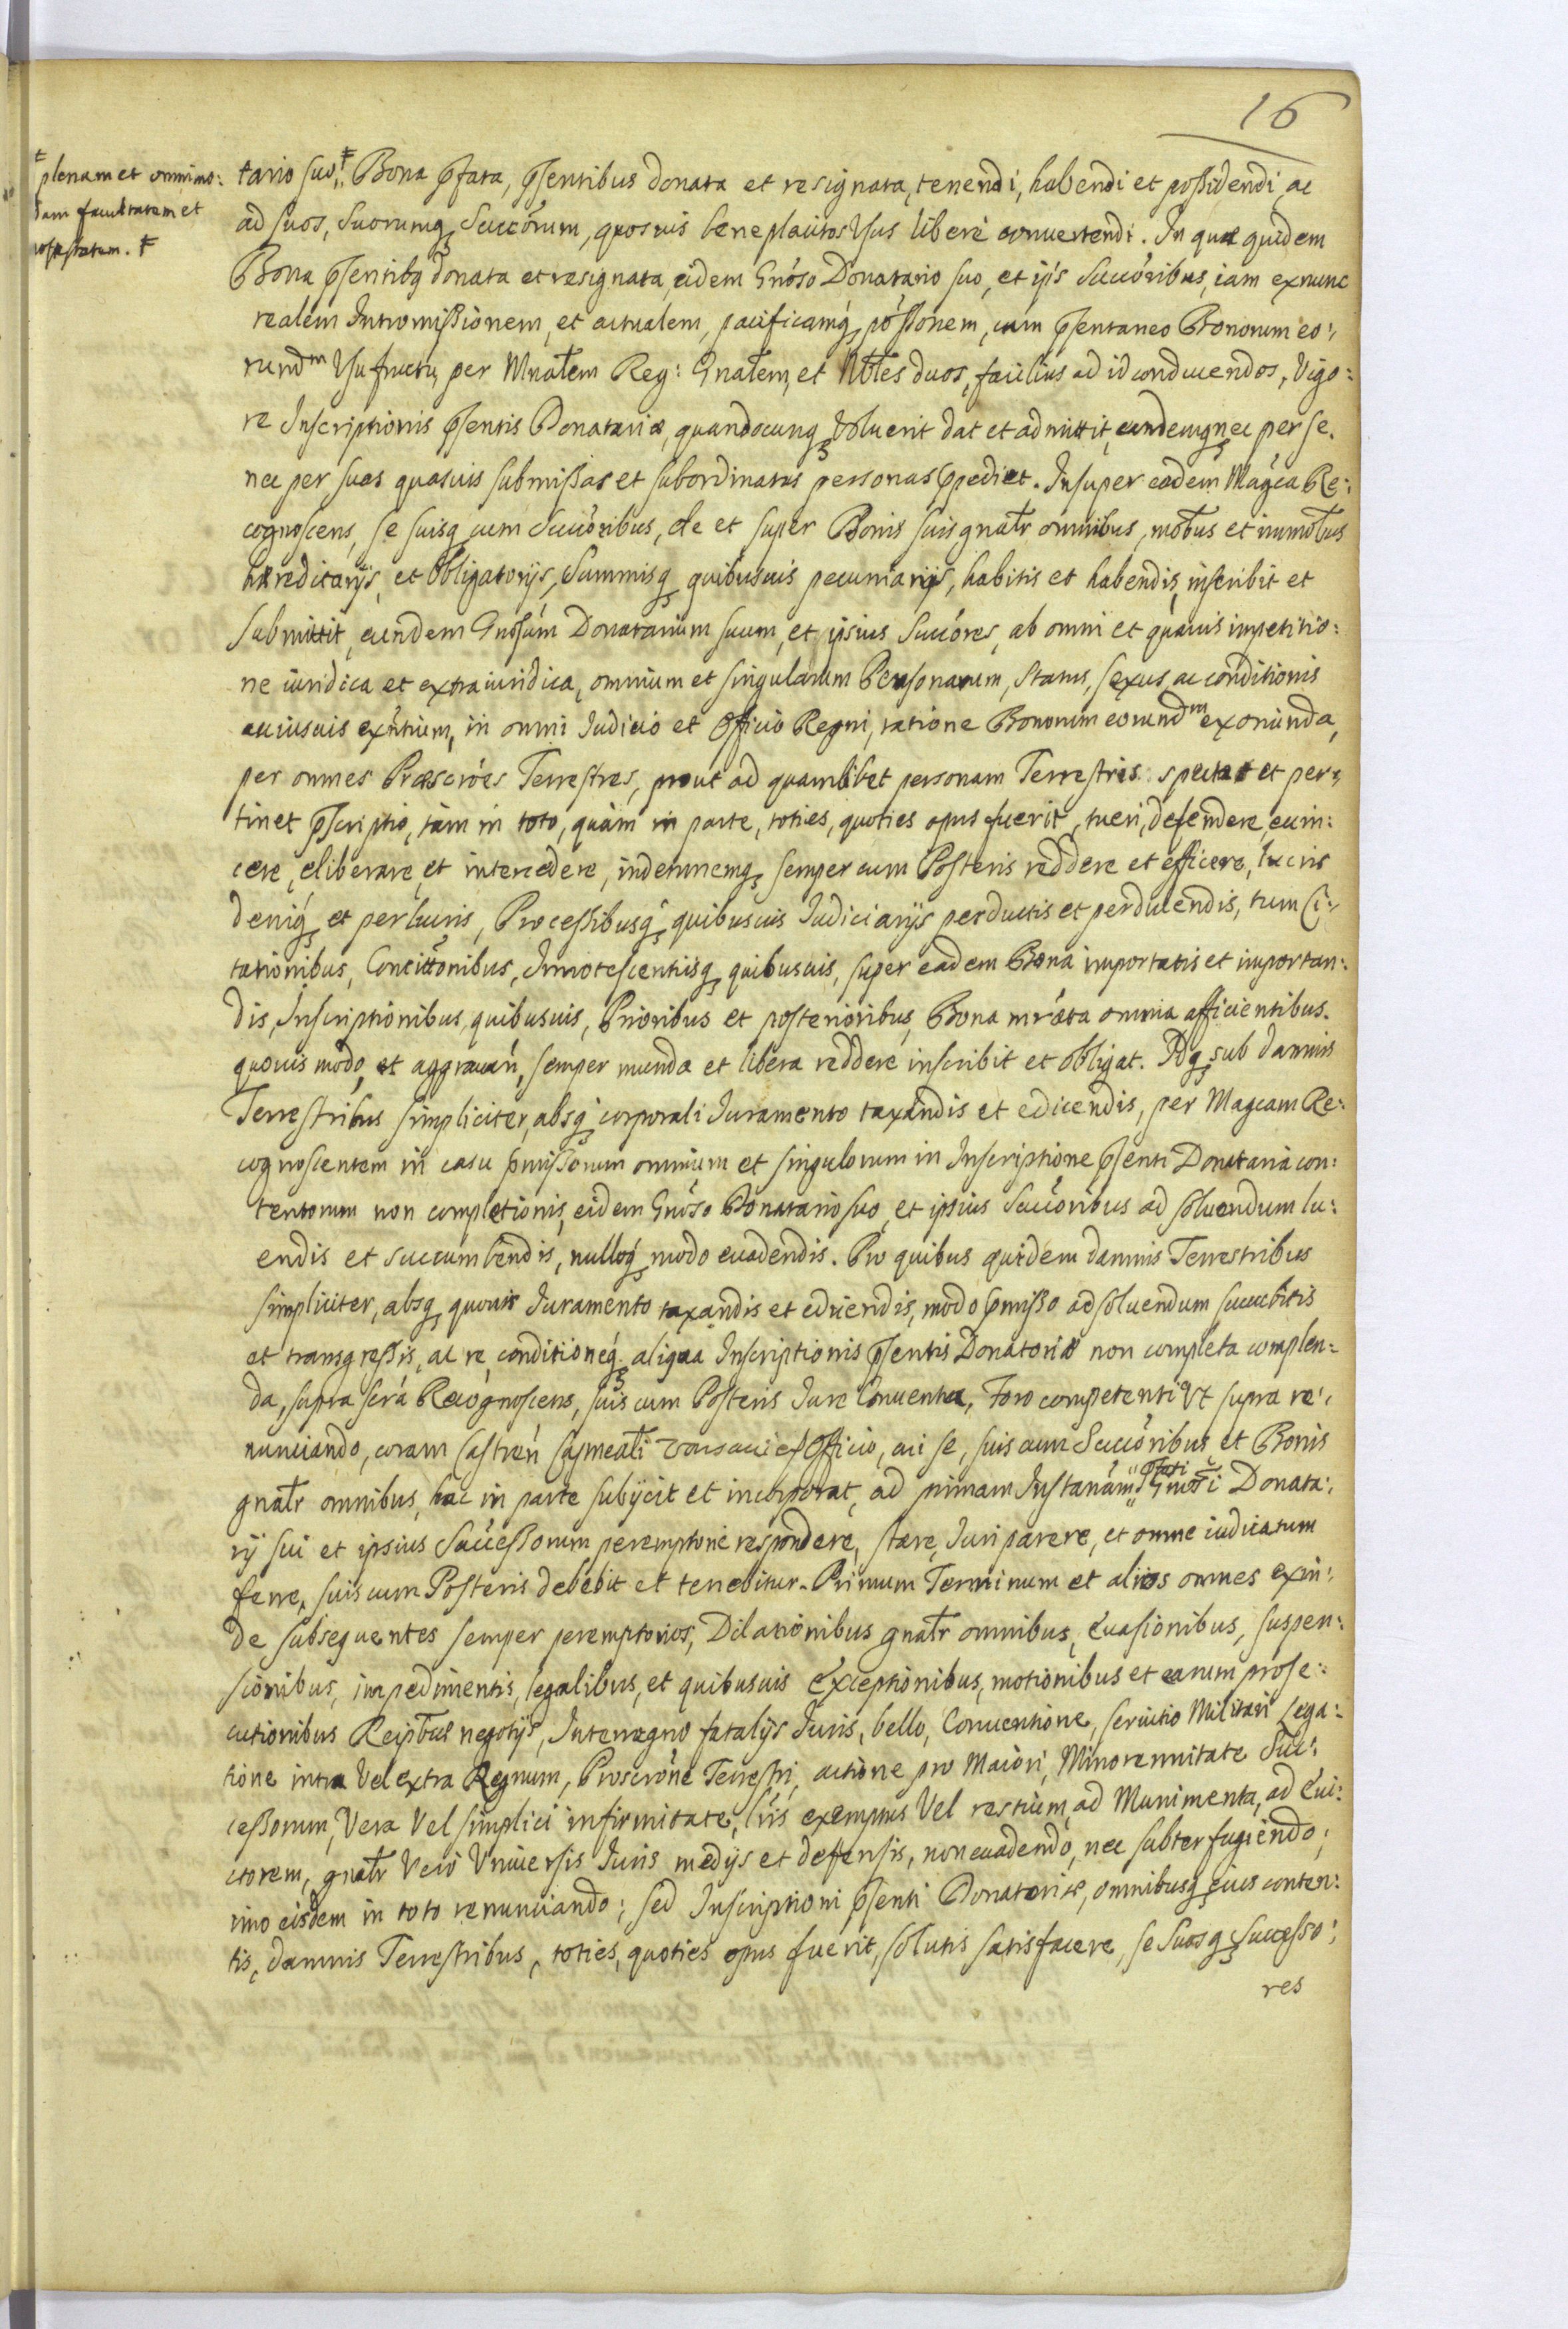 16
ǂ plenam et omnimo:
dam facultatem et
potestatem. ǂ
tario suo,ǂ Bona pfata, psentibus donata et resignata, tenendi, habendi et possidendi, ac
ad suos, suorumq Succorum, quosuis beneplacitos Usus libere conuertendi. In quæ quidem
Bona psentibq donata et resignata, eidem Gnoso Donatario suo, et ipis Succoribus, iam exnunc
realem Intromissionem, et actualem, pacificamq possonem, cum psentaneo Bonorum eo:
rundm Usufructu, per Mnalem Reg: Gnalem, et Nobles duos, facilius ad id conducendos, Vigo:
re Inscriptionis psentis Donatariæ, quandocunq Voluerit dat et admittit, eundemq nec per se.
nec per suas quasuis submissas et subordinatas personas ppediet. Insuper eadem Magca Re:
cognoscens, se suisq cum Succoribus, de et super Bonis suis gnalr omnibus, mobus et immobus
hæreditarijs, et Obligatorijs, Summisq quibusuis pecuniarijs, habitis et habendis, inscribit et
submittit, eundem Gnosum Donatarium suum, et ipsius Succores, ab omni et quauis impetitio:
ne iuridica et extraiuridica, omnium et singularum Personarum, status, sexus ac conditionis
cuiusuis exntium, in omni Iudicio et Officio Regni, ratione Bonorum eorundm exoriunda,
per omnes Præscroes Terrestres, prout ad quamlibet personam Terrestris spectat et per:
tinet pscriptio, tam in toto, quàm in parte, toties, quoties opus fuerit, tueri, defendere, euin:
cere, eliberare, et intercedere, indemnemq semper cum Posteris reddere et efficere, lucris
deniq et perlucris, Processibusq quibusuis Iudiciarijs perductis et perducendis, tum Ci:
tationibus, Concittonibus, Innotescentijsq quibusuis, super eadem Bona importatis et importan:
dis, Inscriptionibus, quibusuis, Prioribus et posterioribus, Bona mrata omnia afficientibus.
quouis modo, et aggrauan, semper munda et libera reddere inscribit et obligat. Idq sub damnis
Terrestribus simpliciter, absq corporali Iuramento taxandis et edicendis, per Magcam Re:
cognoscentem in casu pmissorum omnium et singulorum in Inscriptione psenti Donataria con:
tentorum non completionis, eidem Gnoso Donatario suo, et ipsius Succoribus ad soluendum lu:
endis et succumbendis, nulloq modo euadendis. Pro quibus quidem damnis Terrestribus
simpliciter, absq quouis Iuramento taxandis et edicendis, modo pmisso ad soluendum succubitis
et transgressis, ac re conditioneq aliqua Inscriptionis psentis Donatoriæ non completa complen:
da, supra scra Recognoscens, suis cum Posteris Iure Conuenta, Foro competenti Vt supra re:
nunciando, coram Castren Capitaneali Varsauien Officio, cui se, suis cum Succoribus et Bonis
gnalr omnibus, hac in parte subijcit et incorporat, ad primam Instanam pfati Gnosi Donata:
rij sui et ipsius Successorum peremptorie respondere, stare, Iuri parere, et omne iudicatum
ferre, suis cum Posteris debebit et tenebitur. Primum Terminum et alios omnes exin:
de subsequentes semper peremptorios, Dilationibus gnalr omnibus, euasionibus, suspen:
sionibus, impedimentis, legalibus, et quibusuis Exceptionibus, motionibus et earum prose:
cutionibus Reipbus negotijs, Interregno fatalijs Iuris, bello, Conuentione, seruitio Militari Lega:
tione intra Vel extra Regnum, Proscrone Terrestri, actione pro Maiori, Minorennitate Suc:
cessorum, Vera Vel simplici infirmitate, lris exemptus Vel restium, ad Munimenta, ad Eui:
ctorem, gnalr Vero Vniuersis Iuris medijs et defensis, non euadendo, nec subterfugiendo,
imo eisdem in toto renunciando; sed Inscriptioni psenti Donatoriæ, omnibusq eius conten:
tis, damnis Terrestribus, toties, quoties opus fuerit, solutis satisfacere, se Suosq Successo:
res